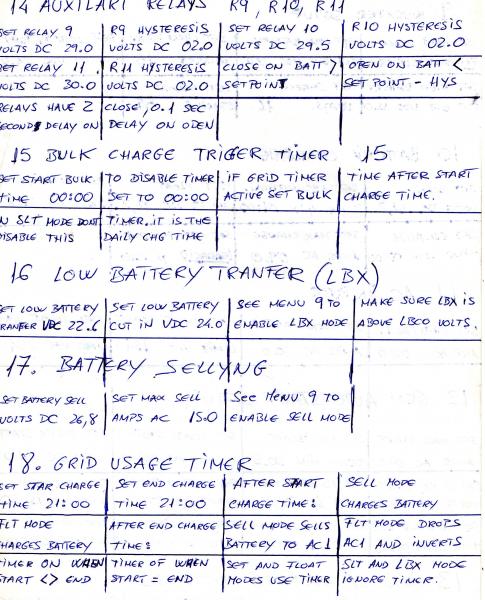 14 AUXILARI RELAYS R9, R10, R11
SET RELAY 9 R9 HYSTERESIS SET RELAY 10 R10 HYSTERESIS
VOLTS DC 29.0 VOLTS DC 02.0 VOLTS DC 29.5 VOLTS DC 02.0
SET RELAY 11. R11 HYSTERESIS CLOSE ON BATT > OPEN ON BATT <
VOLTS DC 30.0 VOLTS DC 02.0 SETPOINT SET POINT - HYS
RELAYS HAVE 2 CLOSE, 0.1 SEC
SECOND DELAY ON DELAY ON OPEN
15 BULK CHARGE TRIGER TIMER 15
SET START BULK TO DISABLE TIMER IF GRID TIMER TIME AFTER START
TIME 00:00 SET TO 00:00 ACTIVE SET BULK CHARGE TIME.
IN SLT MODE DONT TIMER. IT IS THE
DISABLE THIS DAILY CHG TIME
16 LOW BATTERY TRANFER (LBX)
SET LOW BATTERY SET LOW BATTERY SEE MENU 9 TO MAKE SURE LBX IS
TRANFER VDC 22.6 CUT IN VDC 24.0 ENABLE LBX MODE ABOVE LBCO VOLTS.
17. BATTERY SELLYNG
SET BATTERY SELL SET MAX SELL SEE MENU 9 TO
VOLTS DC 26,8 AMPS AC 15.0 ENABLE SELL MODE
18. GRID USAGE TIMER
SET STAR CHARGE SET END CHARGE AFTER START SELL MODE
TIME 21:00 TIME 21:00 CHARGE TIME: CHARGES BATTERY
FLT MODE AFTER END CHARGE SELL MODE SELLS FLT MODE DROPS
CHARGES BATTERY TIME: BATTERY TO AC1 AC1 AND INVERTS
TIMER ON WHEN TIMER OF WHEN SET AND FLOAT SLT AND LBX MODE
START <> END START = END MODES USE TIMER IGNORE TIMER.